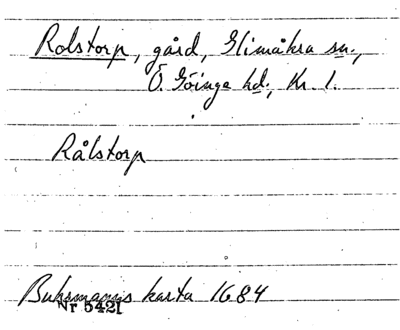 Rolstorp, gård, Glimåkra sn.,
Ö. Göinge hd., Kr. l.
Rålstorp
Buhrmanns karta 1684
Nr 5421